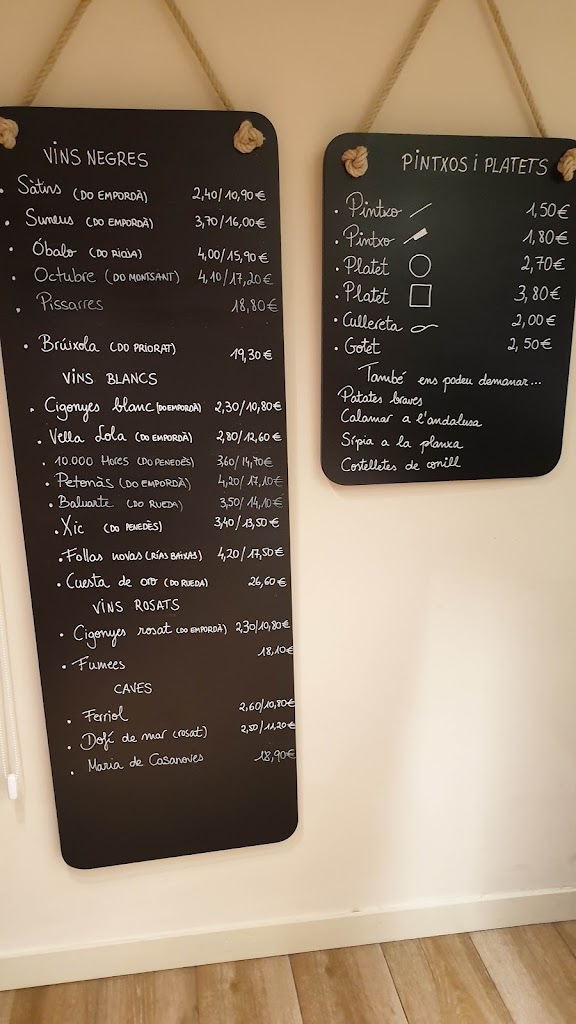 VINS NEGRES
· Sàtirs (DO EMPORDÀ) 2,40/10,90€
· Suneus (DO EMPORDÀ) 3,70/16,00€
· Óbalo (DO RIOJA) 4,00/15,90€
· Octubre (DO MONTSANT) 4,10/17,20€
· Pissarres 18,80€
· Brúixola (DO PRIORAT) 19,30€
VINS BLANCS
· Cigonyes blanc (DO EMPORDÀ) 2,30/10,80€
· Vella Lola (DO EMPORDÀ) 2,80/12,60€
· 10.000 Hores (DO PENEDÈS) 3,60/14,70€
· Petonàs (DO EMPORDÀ) 4,20/17,10€
· Baluarte (DO RUEDA) 3,50/14,10€
· Xic (DO PENEDÈS) 3,40/13,50€
· Follas novas (RÍAS BAIXAS) 4,20/17,50€
· Cuesta de oro (DO RUEDA) 26,60€
VINS ROSATS
· Cigonyes rosat (DO EMPORDÀ) 2,30/10,80€
· Fumees 18,10€
CAVES
· Ferriol 2,60/10,80€
· Dofí de mar (rosat) 2,50/11,20€
· Maria de Casanoves 18,90€
PINTXOS i PLATETS
· Pintxo 1,50€
· Pintxo 1,80€
· Platet 2,70€
· Platet 3,80€
· Cullereta 2,00€
· Gotet 2,50€
També ens podeu demanar...
Patates braves
Calamar a l'andalusa
Sípia a la planxa
Costelletes de conill